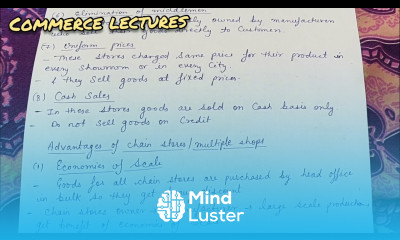 COMMERCE LECTURES
Elimination of middlemen
owned by manufacturer
directly to Customer
(7) Uniform prices
- These stores charged same price for their product in
every Showroom or in every City.
- They sell goods at fixed prices.
(8) Cash Sales
- In these stores goods are sold on Cash basis only
- Do not sell goods on Credit
Advantages of chain stores / multiple shops
(1) Economies of Scale
- Goods for all chain stores are purchased by head office
in bulk so they get
- Chain stores owner large scale production
get benefit of economies of
Mind
Luster